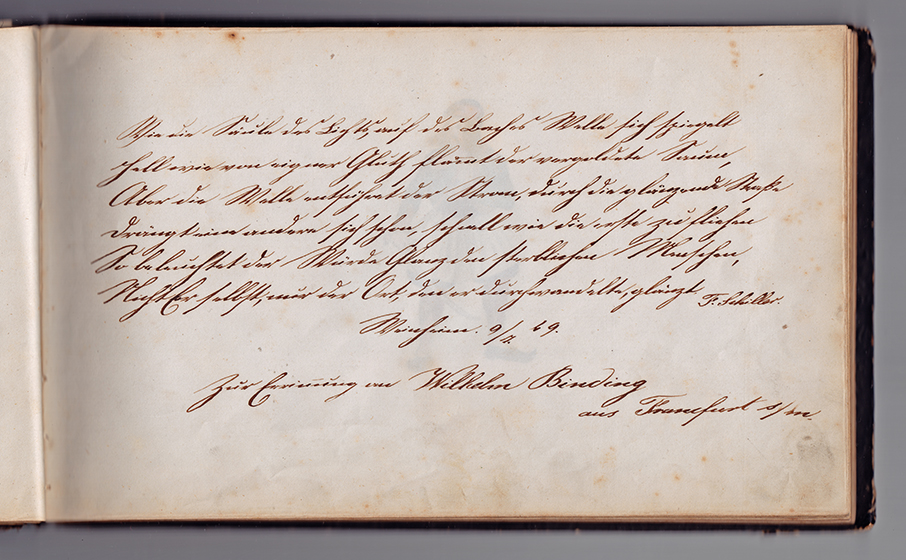 Wie die Säule des Lichts auf des Baches Welle sich spiegelt
Hell wie von eigner Gluth flammt der vergoldete Saum,
Aber die Welle entführet der Strom, durch die glänzende Straße
Drängt eine andere sich schon, schnell wie die erste zu fliehen
So beleuchtet der Würde Glanz den sterblichen Menschen,
Nicht Er selbst, nur der Ort, den er durchwandelte, glänzt
F. Schiller.
Weinheim. 9/4 69.
Zur Erinnerung an Wilhelm Binding
aus Francfurt a/m.